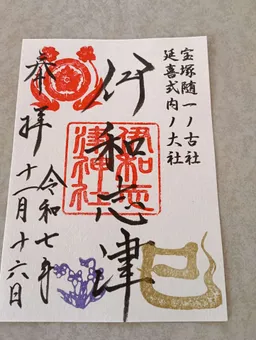 宝塚随一ノ古社
延喜式内ノ大社
伊和志津
伊和志津神社
奉拝
令和七年
十一月十六日
巳